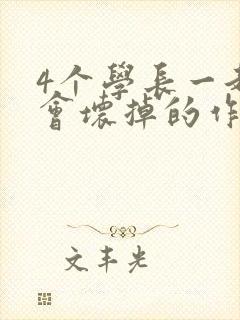 4个學長一
會壞掉的作
文丰光